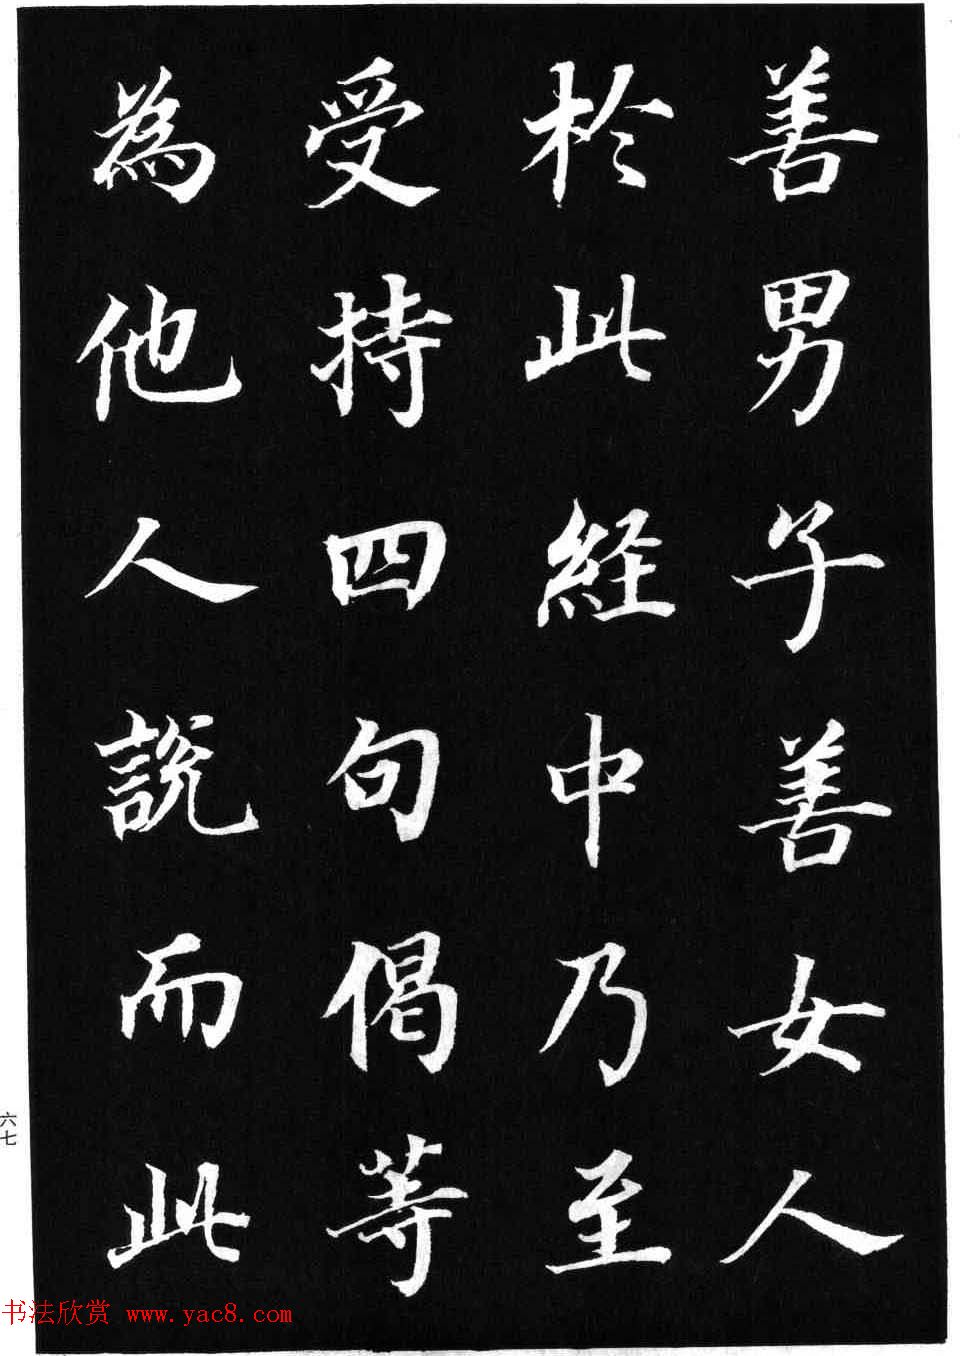 善男子善女人
於此経中乃至
受持四句偈等
為他人説而此
六七
书法欣赏 www.yac8.com